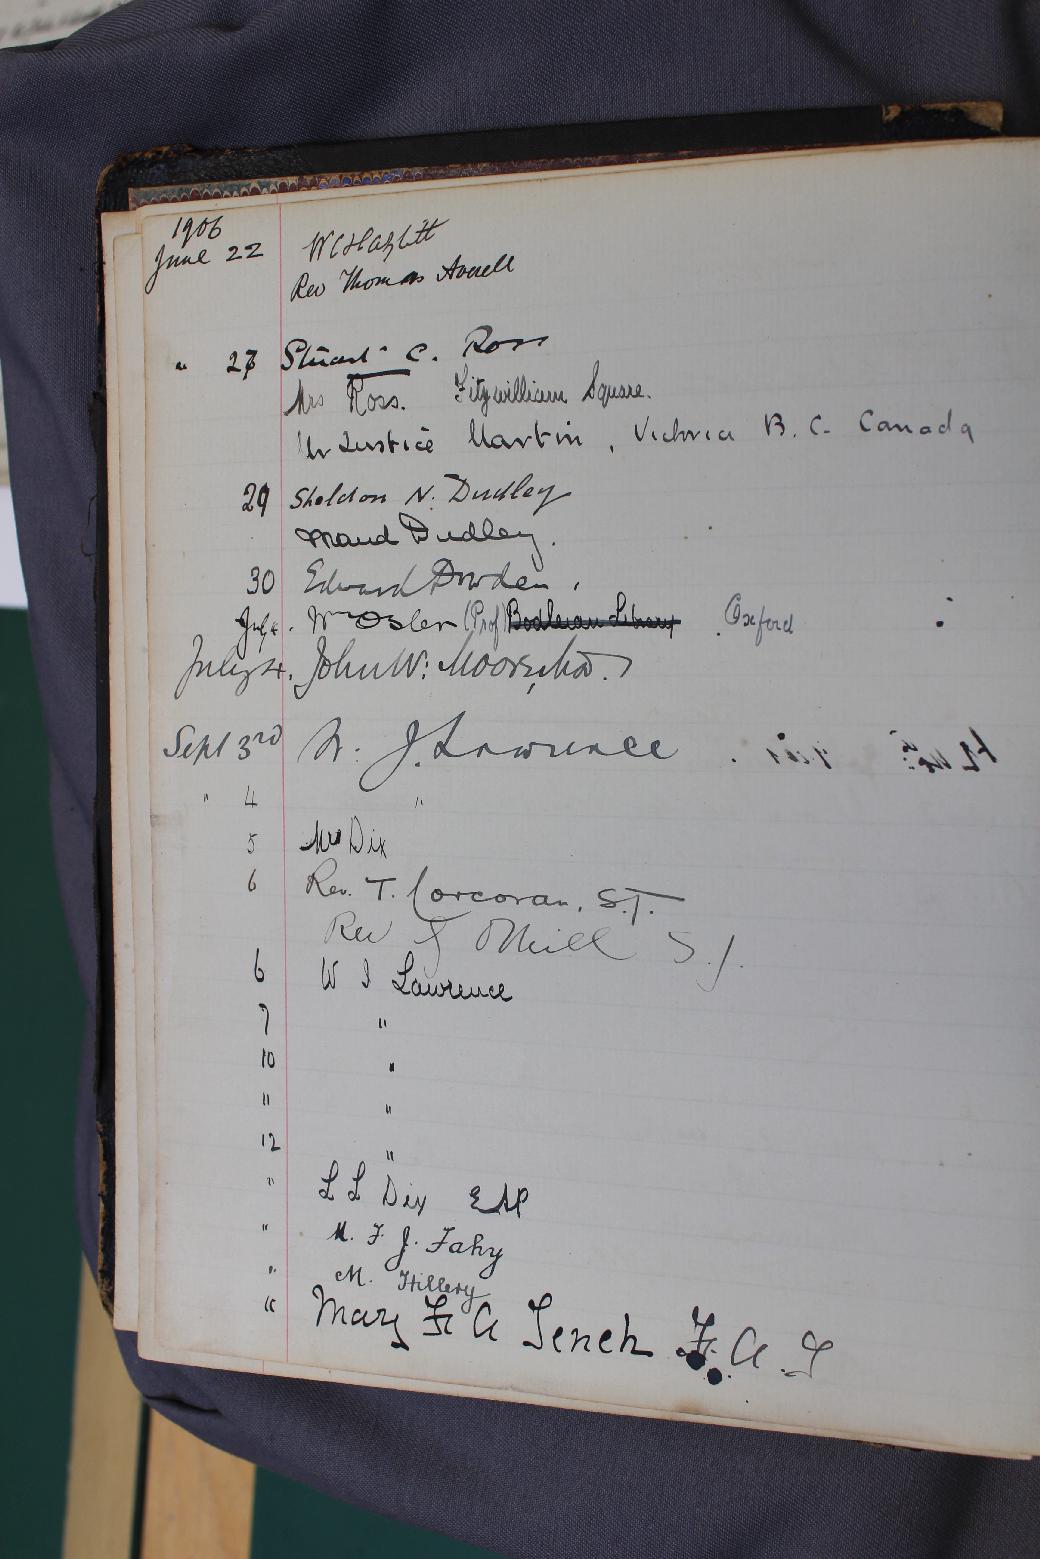 1906
June 22 W C Hazlitt
Rev Thomas Averell
" 27 Stuart C. Ross
Mrs Ross. Fitzwilliam Square.
Mr Justice Martin, Victoria B.C. Canada
29 Sheldon N. Dudley
Maud Dudley.
30 Edward Dowden.
July 4. Wm Osler (Prof) Bodleian Library Oxford
July 4. John W. Moore, M.D.
Sept 3rd W. J. Lawrence
" 4 "
5 Mr Dix
6 Rev. T. Corcoran, S.J.
Rev J O'Neill S.J.
6 W J Lawrence
7 "
10 "
" "
12 "
" L L Dix Esq
" M. F. J. Fahy
" M. Hillery
" Mary F A Tench F. A. T